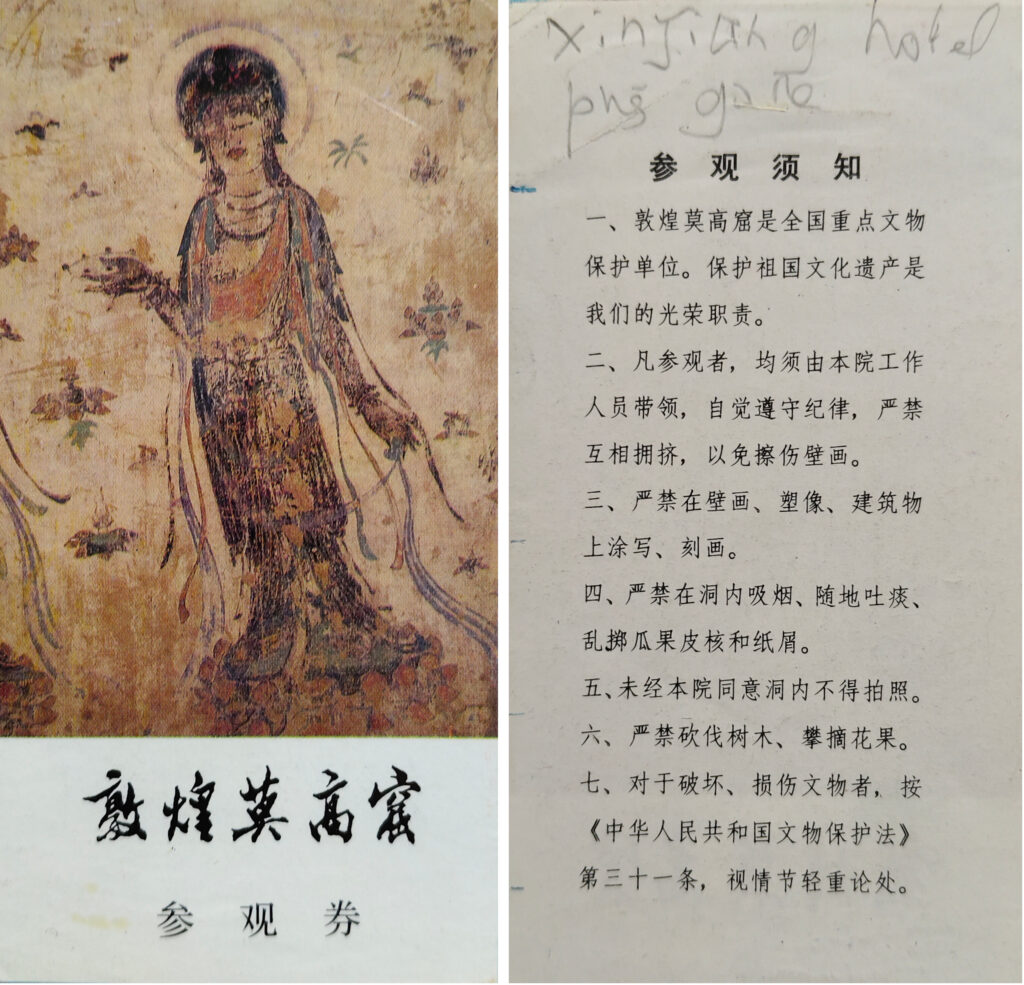 敦煌莫高窟
参观券
xinjiang hotel
参观须知
一、敦煌莫高窟是全国重点文物
保护单位。保护祖国文化遗产是
我们的光荣职责。
二、凡参观者，均须由本院工作
人员带领，自觉遵守纪律，严禁
互相拥挤，以免擦伤壁画。
三、严禁在壁画、塑像、建筑物
上涂写、刻画。
四、严禁在洞内吸烟、随地吐痰、
乱掷瓜果皮核和纸屑。
五、未经本院同意洞内不得拍照。
六、严禁砍伐树木、攀摘花果。
七、对于破坏、损伤文物者，按
《中华人民共和国文物保护法》
第三十一条，视情节轻重论处。